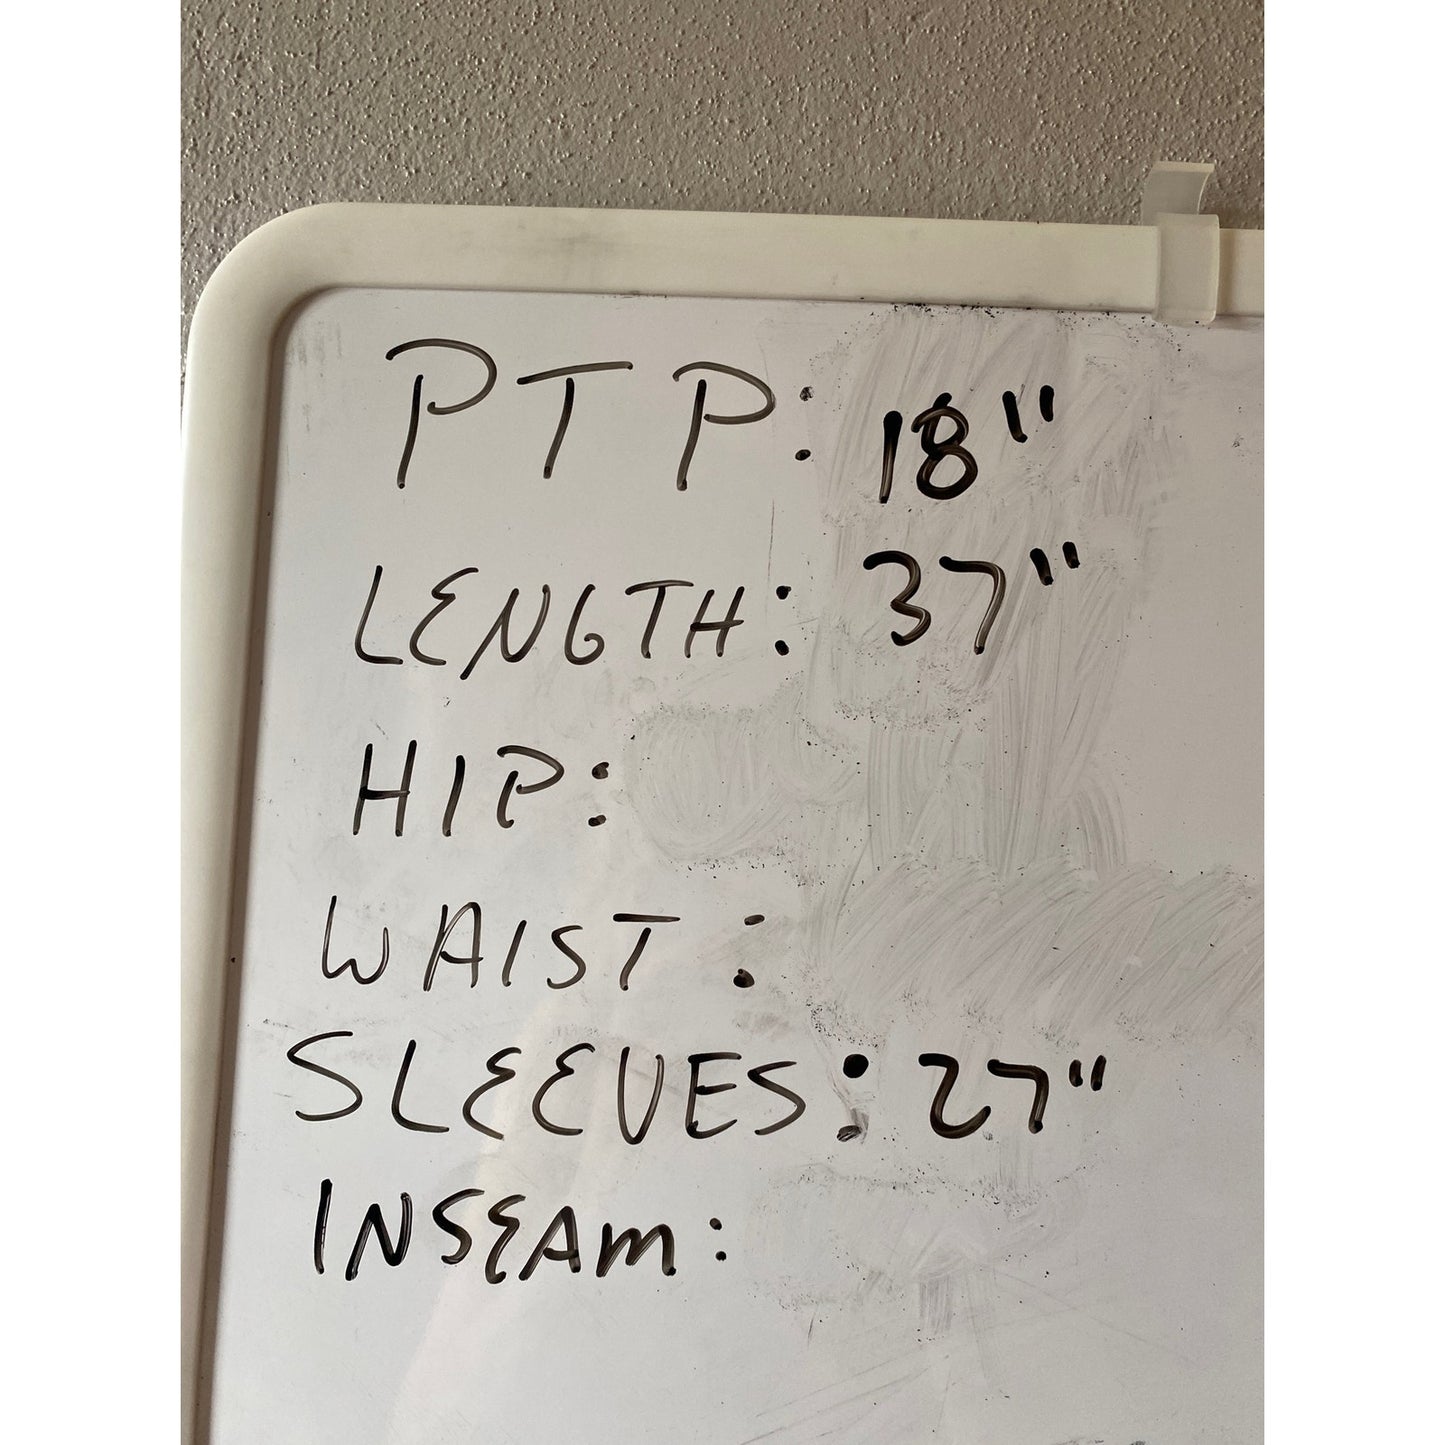 PTP: 18"
LENGTH: 37"
HIP:
WAIST:
SLEEVES: 27"
INSEAM: